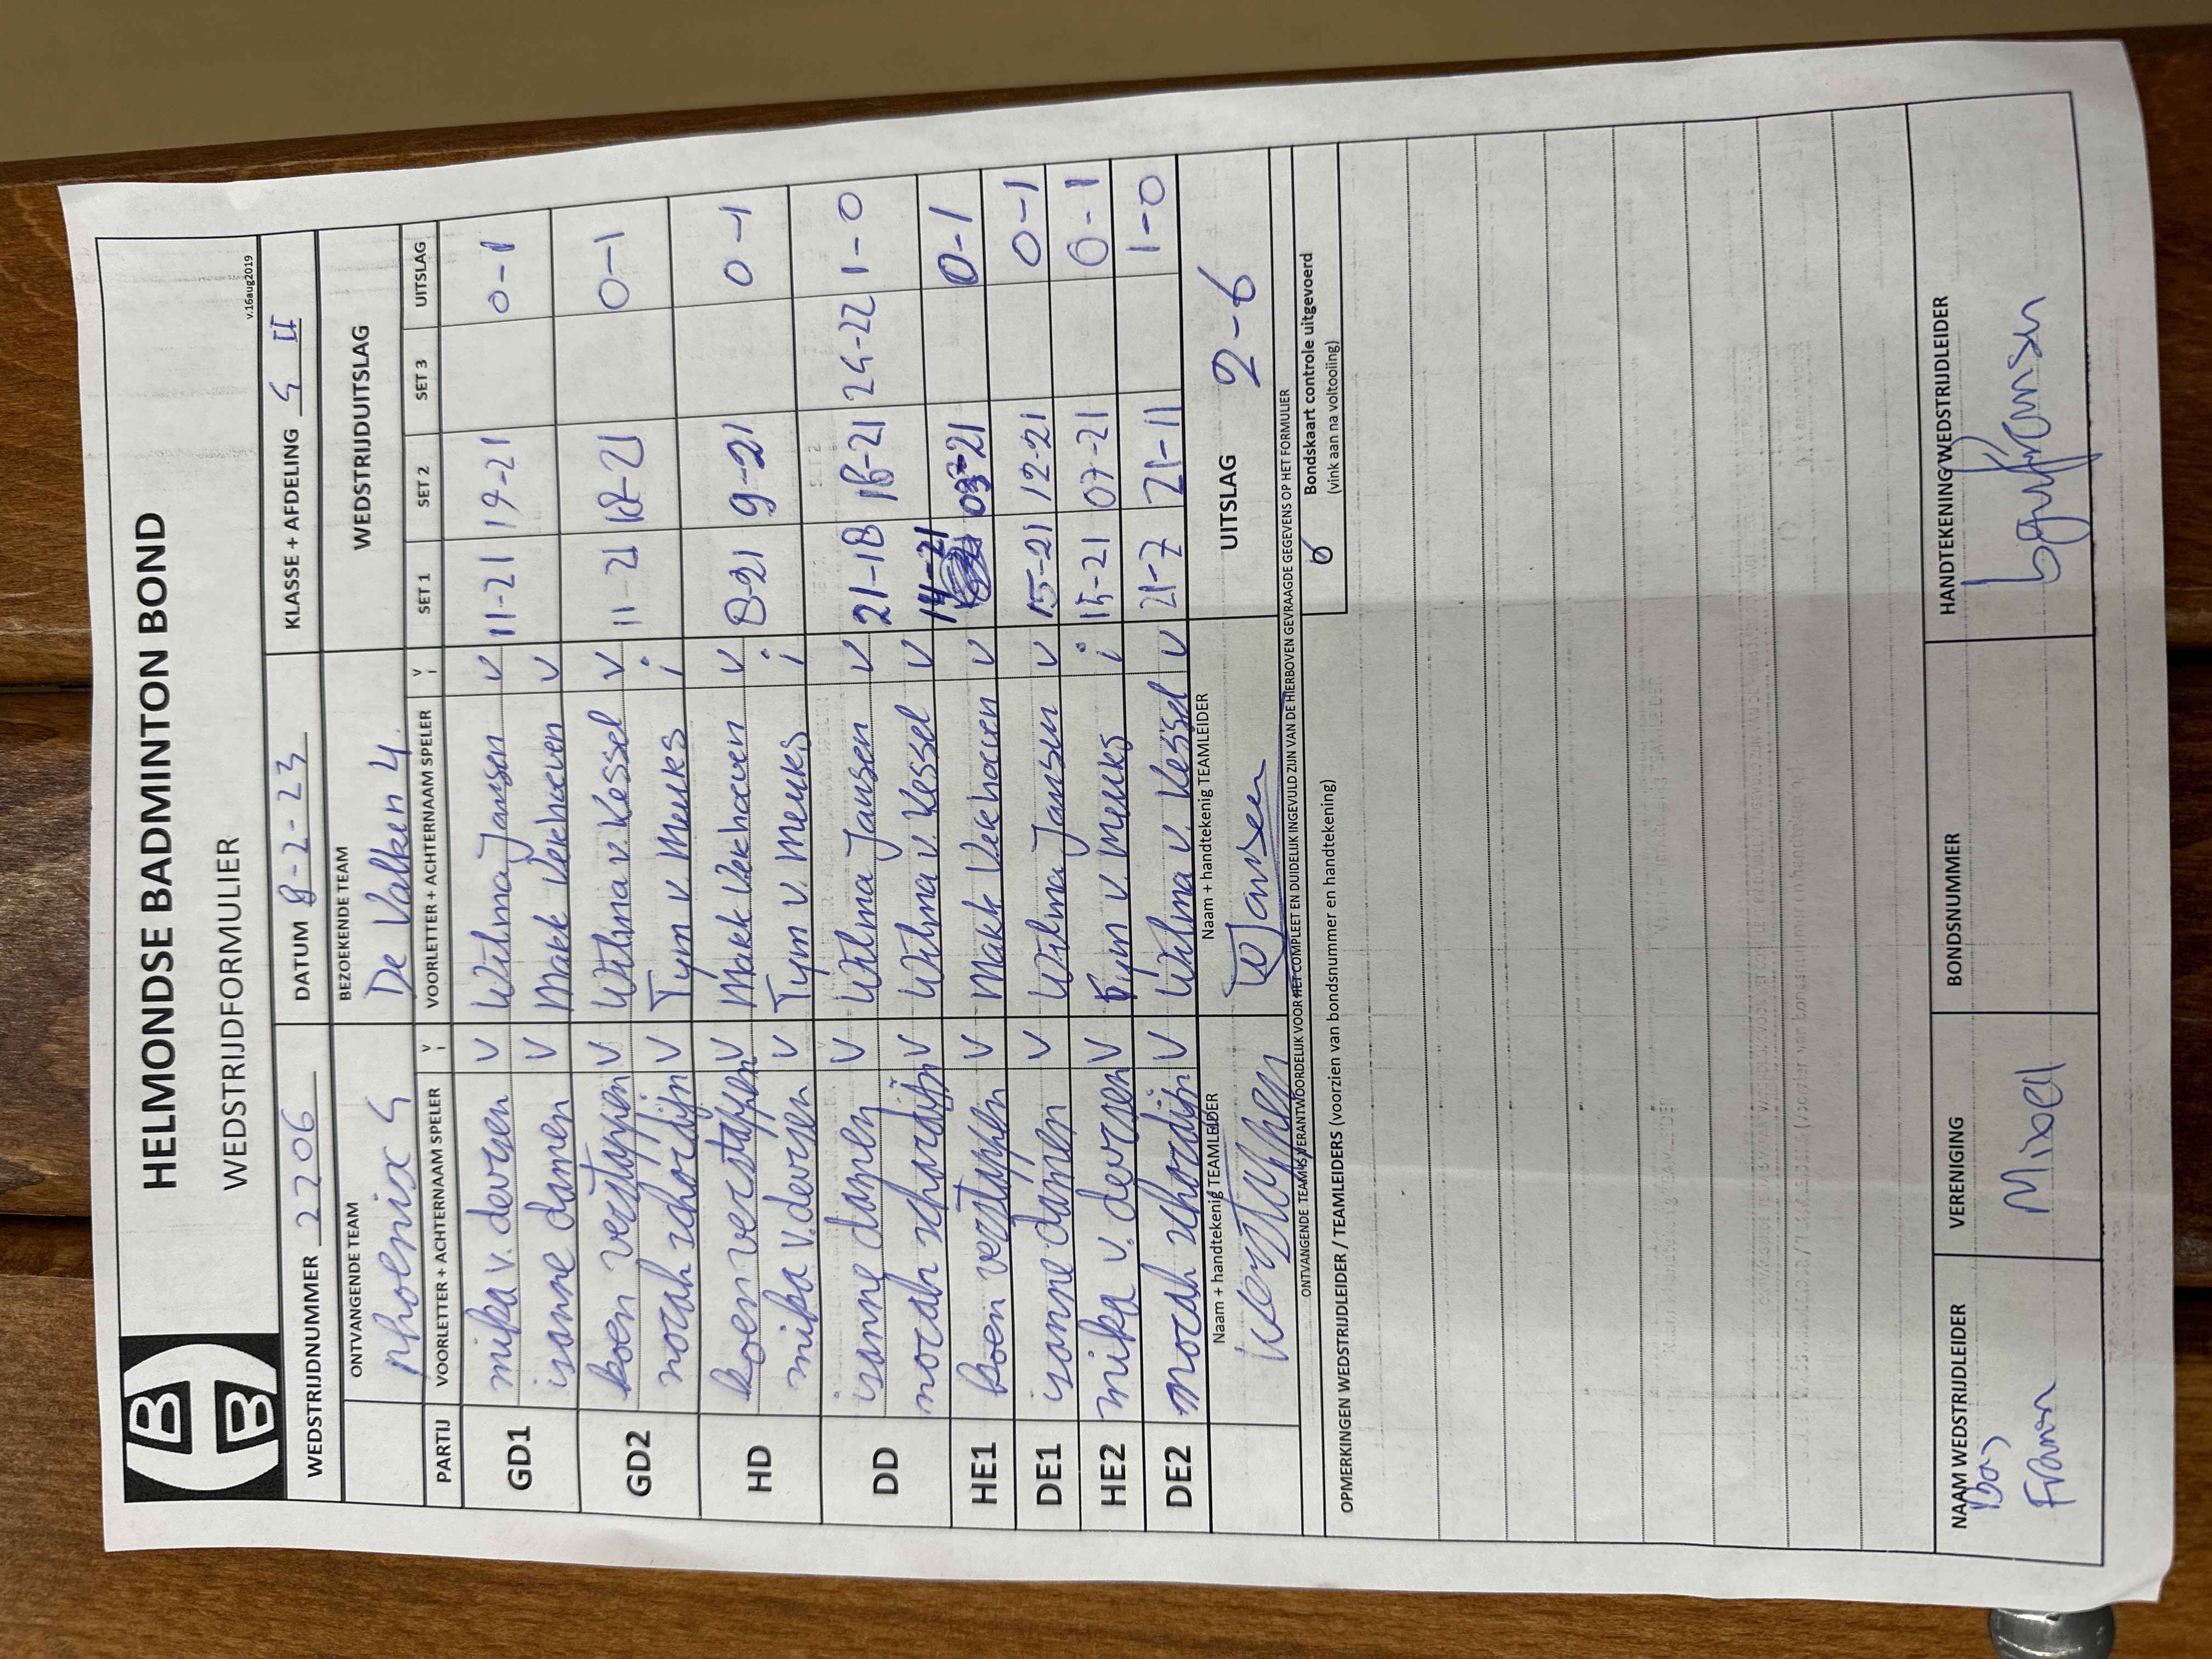 HELMONDSE BADMINTON BOND
WEDSTRIJDFORMULIER
v.16aug2019
WEDSTRIJDNUMMER 2206 DATUM 8-2-23 KLASSE + AFDELING 4 II
ONTVANGENDE TEAM BEZOEKENDE TEAM WEDSTRIJDUITSLAG
phoenix 4 De Valken 4
PARTIJ VOORLETTER + ACHTERNAAM SPELER V VOORLETTER + ACHTERNAAM SPELER V i SET 1 SET 2 SET 3 UITSLAG
GD1 mika v. deursen v Wilma Jansen v 11-21 19-21 0-1
isanne damen v Mark Verhoeven v
GD2 koen verstappen v Wilma v. Kessel v 11-21 18-21 0-1
norah schordijn v Tym v. Meurs i
HD koen verstappen v Mark Verhoeven v 8-21 9-21 0-1
mika v. deursen v Tym v. Meurs i
DD isanne damen v Wilma Jansen v 21-18 16-21 24-22 1-0
norah schordijn v Wilma v. Kessel v
HE1 koen verstappen v Mark Verhoeven v 14-21 03-21 0-1
DE1 isanne damen v Wilma Jansen v 15-21 12-21 0-1
HE2 mika v. deursen v Tym v. Meurs i 15-21 07-21 0-1
DE2 norah schordijn v Wilma v. Kessel v 21-7 21-11 1-0
Naam + handtekenig TEAMLEIDER Naam + handtekenig TEAMLEIDER UITSLAG 2-6
Verstappen Jansen
ONTVANGENDE TEAM IS VERANTWOORDELIJK VOOR HET COMPLEET EN DUIDELIJK INGEVULD ZIJN VAN DE HIERBOVEN GEVRAAGDE GEGEVENS OP HET FORMULIER
OPMERKINGEN WEDSTRIJDLEIDER / TEAMLEIDERS (voorzien van bondsnummer en handtekening)
Bondskaart controle uitgevoerd
(vink aan na voltooiing)
NAAM WEDSTRIJDLEIDER VERENIGING BONDSNUMMER HANDTEKENING WEDSTRIJDLEIDER
Bas
Mixed